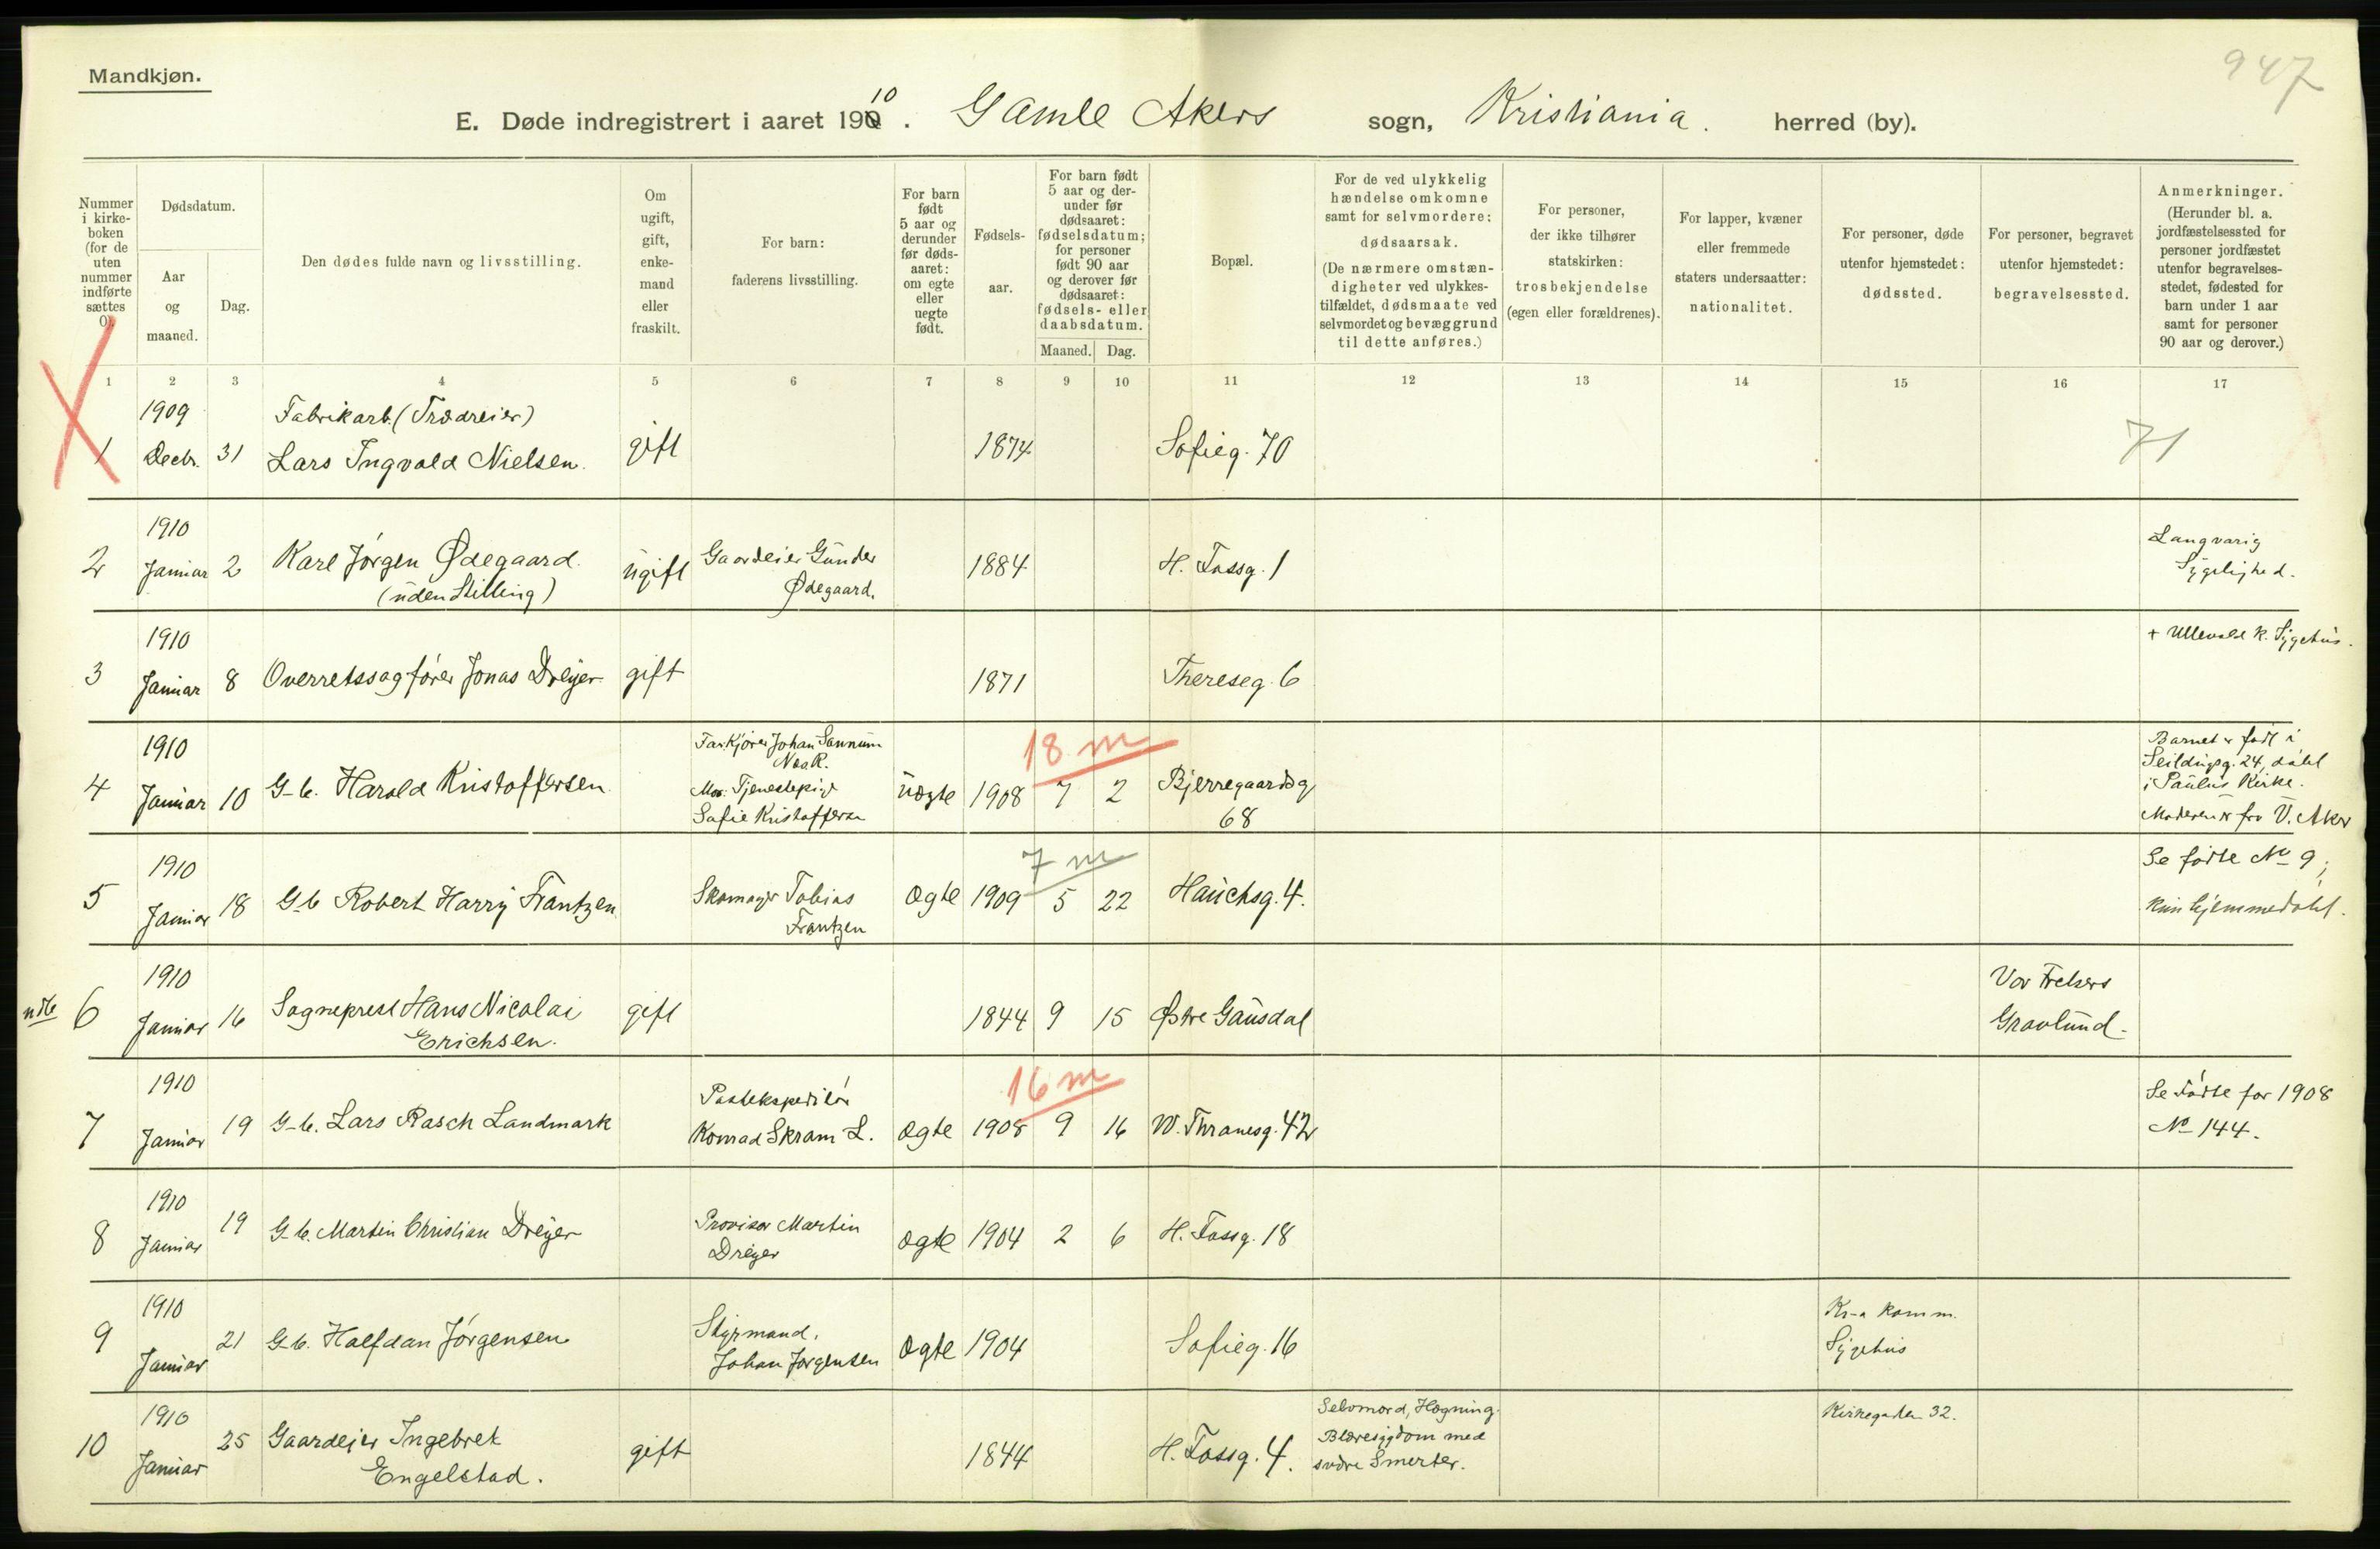 947
Mandkjøn.
E. Døde indregistrert i aaret 1910. Gamle Akers sogn, Kristiania. herred (by).
Nummer i kirke-boken (for de uten nummer indførte sættes 0).
Dødsdatum.
Aar og maaned.
Dag.
Den dødes fulde navn og livsstilling.
Om ugift, gift, enke-mand eller fraskilt.
For barn: faderens livsstilling.
For barn født 5 aar og derunder før døds-aaret: om egte eller uegte født.
Fødsels-aar.
For barn født 5 aar og der-under før dødsaaret: fødselsdatum; for personer født 90 aar og derover før dødsaaret: fødsels- eller daabsdatum.
Maaned. Dag.
Bopæl.
For de ved ulykkelig hændelse omkomne samt for selvmordere: dødsaarsak. (De nærmere omstæn-digheter ved ulykkes-tilfældet, dødsmaate ved selvmordet og bevæggrund til dette anføres.)
For personer, der ikke tilhører statskirken: trosbekjendelse (egen eller forældrenes).
For lapper, kvæner eller fremmede staters undersaatter: nationalitet.
For personer, døde utenfor hjemstedet: dødssted.
For personer, begravet utenfor hjemstedet: begravelsessted.
Anmerkninger. (Herunder bl. a. jordfæstelsessted for personer jordfæstet utenfor begravelses-stedet, fødested for barn under 1 aar samt for personer 90 aar og derover.)
1 2 3 4 5 6 7 8 9 10 11 12 13 14 15 16 17
1909 Fabrikarb. (Trædreier)
1 Decbr. 31 Lars Ingvald Nielsen. gift 1874 Sofieg. 70 71
1910
2 Januar 2 Karl Jørgen Ødegaard. ugift Gaardeier Gunder 1884 H. Fossg. 1 Langvarig
(uden Stilling) Ødegaard. Sygelighed.
1910 + Ullevold k. Sygehus.
3 Januar 8 Overretssagfører Jonas Dreyer gift 1871 Thereseg. 6
1910 Far: Kjører Johan Sannum 18 m Barnet er født i
Seildugsg. 24, døbt
4 Januar 10 G-b. Harald Kristoffersen. Mor: Tjenestepige uægte 1908 7 2 Bjerregaardsg i Paulus Kirke.
Sofie Kristoffersen 68 Moderen er fra V. Aker
1910 7 m Se fødte No 9;
5 Januar 18 G-b Robert Harry Frantzen Skomager Tobias ægte 1909 5 22 Hauchsg. 4. kun hjemmedøbt.
Frantzen
1910 Vor Frelsers
ndb 6 Januar 16 Sogneprest Hans Nicolai gift 1844 9 15 Østre Gausdal Gravlund.
Erichsen.
1910 Postekspeditør 16 m Se Fødte for 1908
7 Januar 19 G-b. Lars Rasch Landmark Konrad Skram L. ægte 1908 9 16 W. Thranesg. 42 No 144.
1910
8 Januar 19 G-b. Martin Christian Dreyer Provisor Martin ægte 1904 2 6 H. Fossg. 18
Dreyer
1910 Kr-a komm.
9 Januar 21 G-b. Halfdan Jørgensen Styrmand, ægte 1904 Sofieg. 16 Sygehus
Johan Jørgensen
1910 Selvmord, Hægning. Kirkegaden 32.
10 Januar 25 Gaardejer Ingebret gift 1844 H. Fossg. 4. Blæresygdom med
Engelstad. svære Smerter.